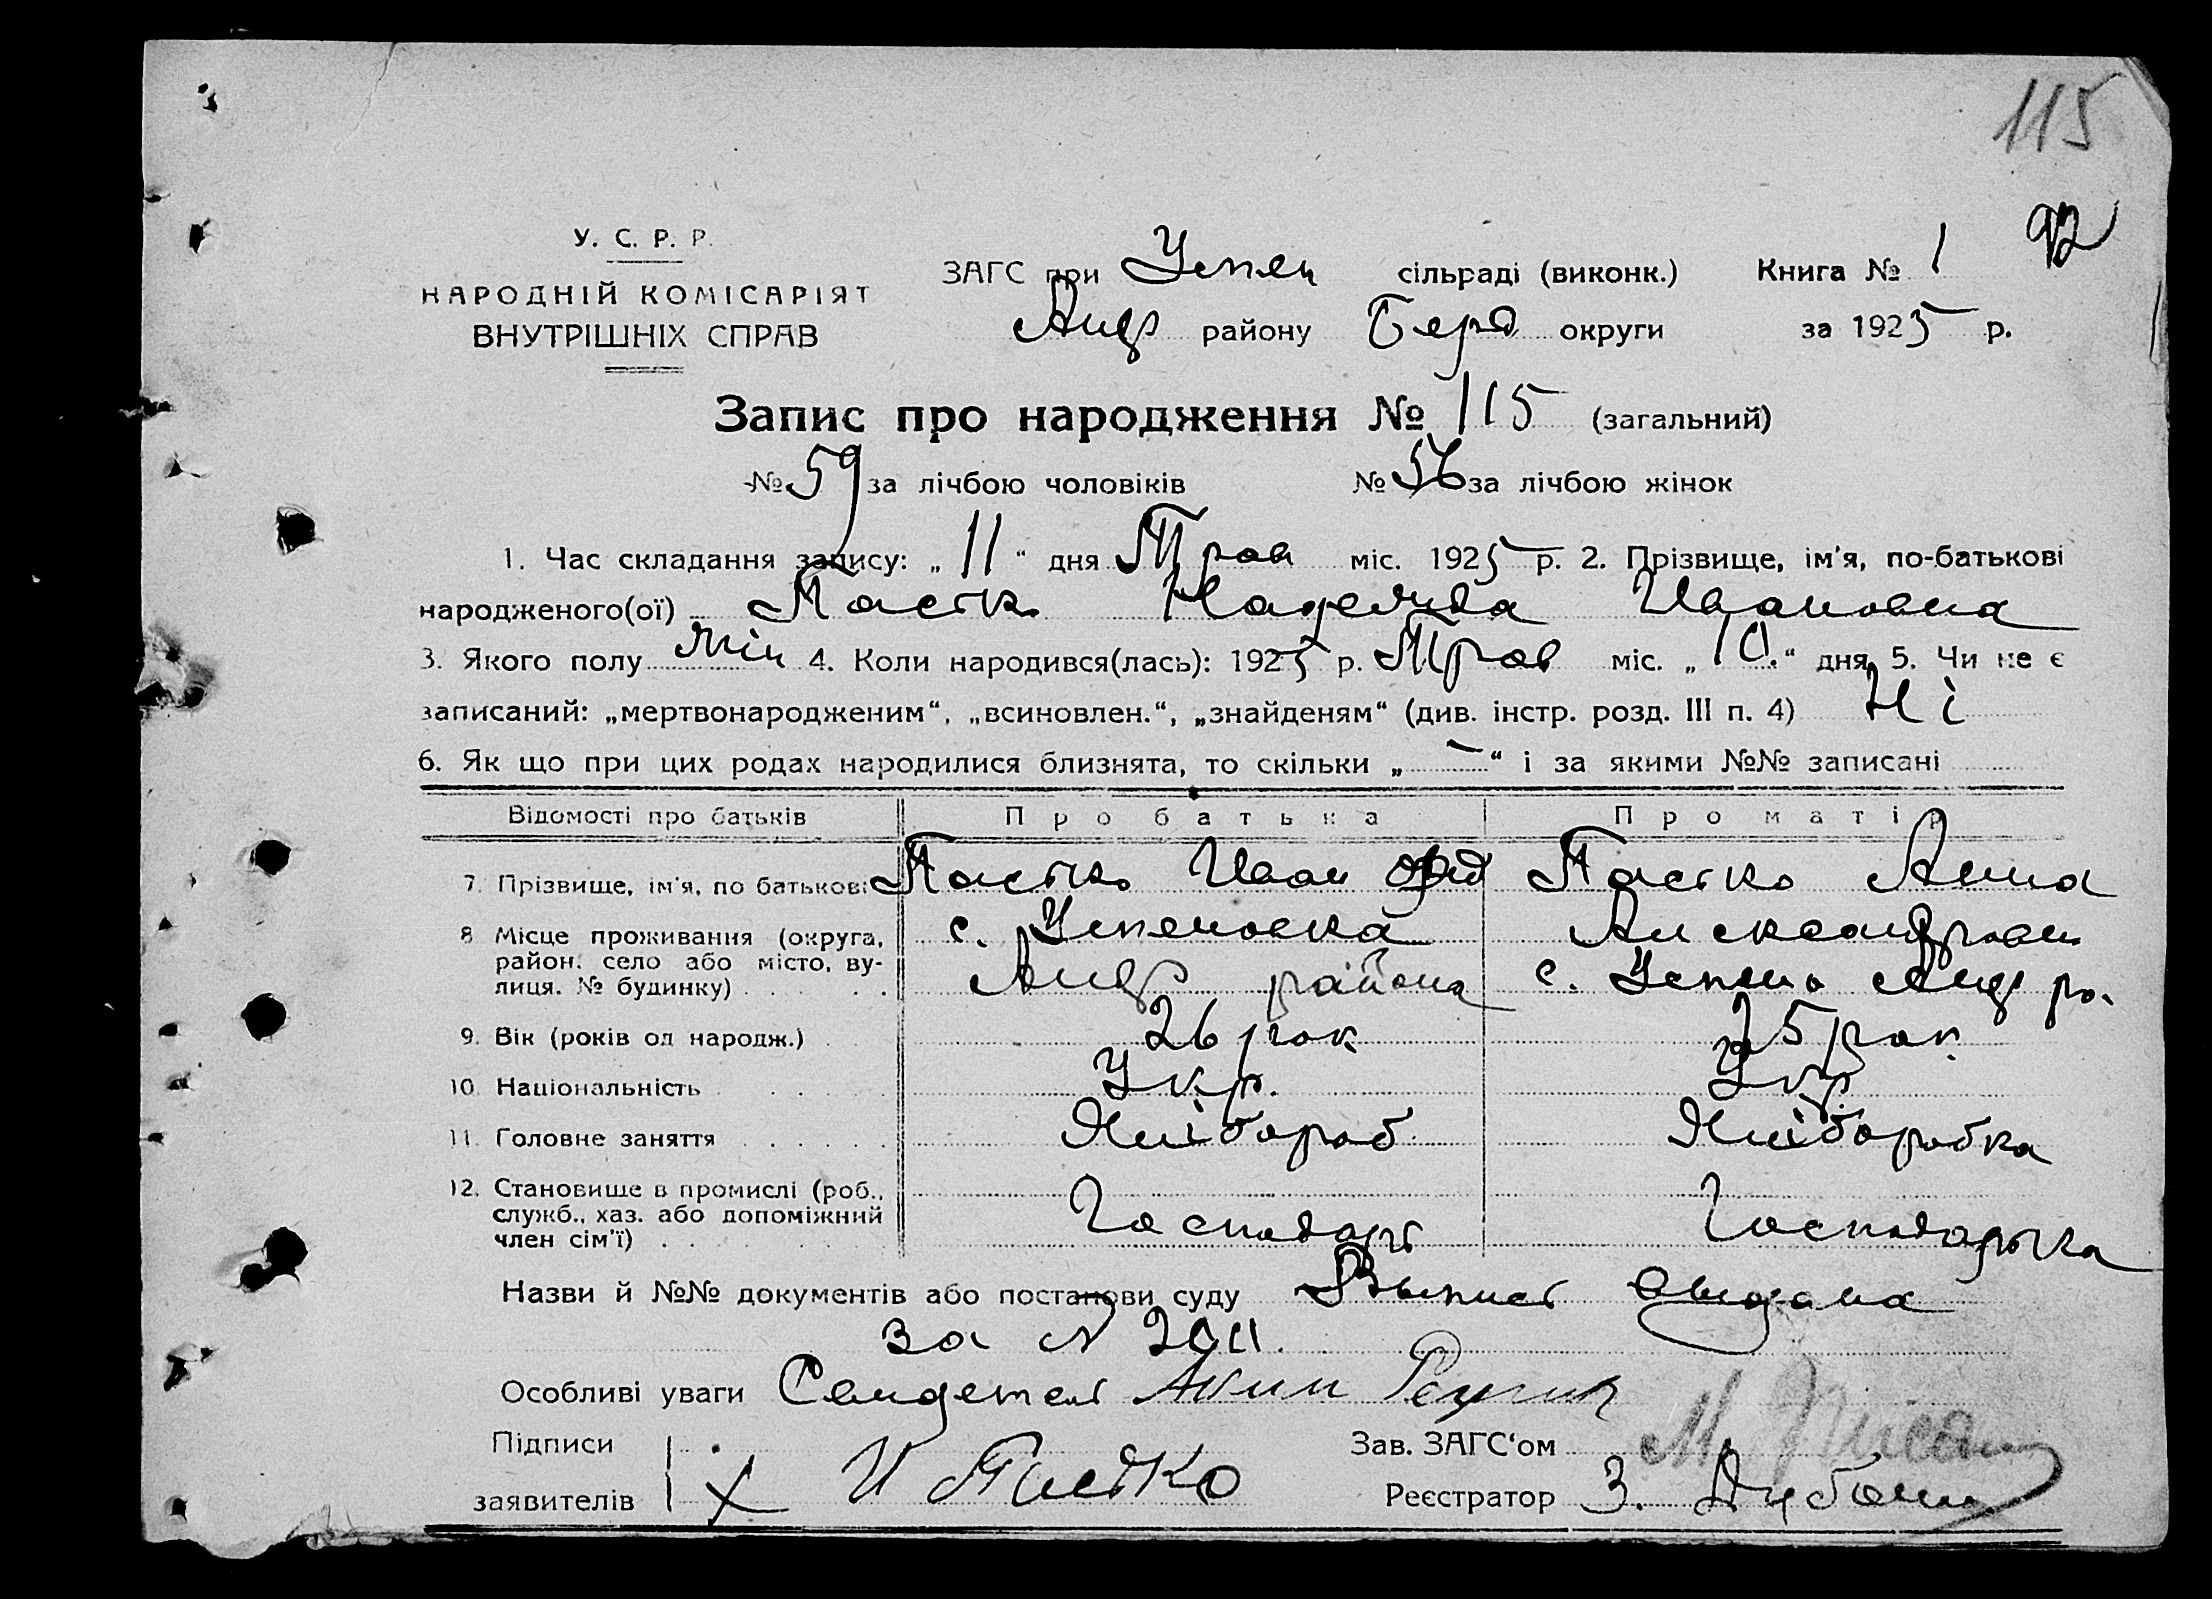 115
92
У. С. Р. Р.
НАРОДНІЙ КОМІСАРІЯТ
ВНУТРІШНІХ СПРАВ
ЗАГС при Успен сільраді (виконк.) Книга № 1
Андр району Берд округи за 1925 р.
Запис про народження № 115 (загальний)
№ 59 за лічбою чоловіків № 56 за лічбою жінок
1. Час складання запису: „ 11 “ дня Трав міс. 1925 р. 2. Прізвище, ім'я, по-батькові
народженого(ої) Пастко Надежда Ивановна
3. Якого полу жін 4. Коли народився(лась): 1925 р. Трав міс. „ 10. “ дня, 5. Чи не є
записаний: „мертвонародженим“, „всиновлен.“, „знайденям“ (див. інстр. розд. III п. 4) Ні
6. Як що при цих родах народилися близнята, то скільки „ — “ і за якими №№ записані
Відомості про батьків Про батька Про матір
7. Прізвище, ім'я, по батькові Пастко Иван Пастко Анна
8 Місце проживання (округа, с. Успеновка Александровн
район, село або місто, ву-
лиця. № будинку) Андр района с. Успено Андр ра.
9. Вік (років од народж.) 26 рок 25 рок
10. Національність Укр. Укр
11. Головне заняття Хлібороб Хліборобка
12. Становище в промислі (роб.,
служб., хаз. або допоміжний Господарь Господарька
член сім'ї)
Назви й №№ документів або постанови суду Выпись
за № 2011.
Особливі уваги Свидетел Аким
Підписи Зав. ЗАГС‘ом
заявителів И Пастко Реєстратор З.